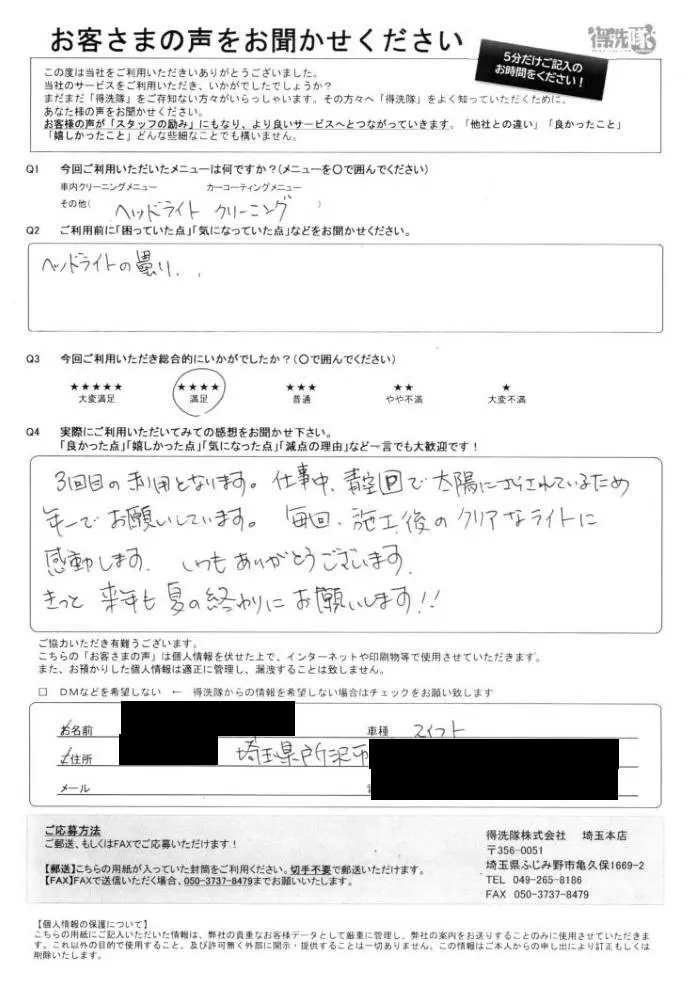 お客さまの声をお聞かせください
得洗隊
5分だけご記入の
お時間をください！
この度は当社をご利用いただきいありがとうございました。
当社のサービスをご利用いただき、いかがでしたでしょうか？
まだまだ「得洗隊」をご存知ない方々がいらっしゃいます。その方々へ「得洗隊」をよく知っていただくために、
あなた様の声をお聞かせください。
お客様の声が「スタッフの励み」にもなり、より良いサービスへとつながっていきます。「他社との違い」「良かったこと」
「嬉しかったこと」どんな些細なことでも構いません。
Q1 今回ご利用いただいたメニューは何ですか？(メニューを〇で囲んでください)
車内クリーニングメニュー カーコーティングメニュー
その他( ヘッドライト クリーニング )
Q2 ご利用前に「困っていた点」「気になっていた点」などをお聞かせください。
ヘッドライトの曇り..
Q3 今回ご利用いただき総合的にいかがでしたか？(〇で囲んでください)
★★★★★ ★★★★ ★★★ ★★ ★
大変満足 満足 普通 やや不満 大変不満
Q4 実際にご利用いただいてみての感想をお聞かせ下さい。
「良かった点」「嬉しかった点」「気になった点」「減点の理由」など一言でも大歓迎です！
3回目の利用となります。仕事中、青空で太陽にさらされているため
年一でお願いしています。毎回、施工後のクリアなライトに
感動します。いつもありがとうございます。
きっと来年も夏の終わりにお願いします!!
ご協力いただき有難うございます。
こちらの「お客さまの声」は個人情報を伏せた上で、インターネットや印刷物等で使用させていただきます。
また、お預かりした個人情報は適正に管理し、漏洩することは致しません。
□ DMなどを希望しない ← 得洗隊からの情報を希望しない場合はチェックをお願い致します
お名前 車種 スイフト
住所 埼玉県所沢市
メール
ご応募方法
ご郵送、もしくはFAXでご応募いただけます！
【郵送】こちらの用紙が入っていた封筒をご利用ください。切手不要で郵送いただけます。
【FAX】FAXで送信いただく場合、050-3737-8479までお願いいたします。
得洗隊株式会社 埼玉本店
〒356-0051
埼玉県ふじみ野市亀久保1669-2
TEL 049-265-8186
FAX 050-3737-8479
【個人情報の保護について】
こちらの用紙にご記入いただいた情報は、弊社の貴重なお客様データとして厳重に管理し、弊社の案内をお送りすることのみに使用させていただきま
す。これ以外の目的で使用すること、及び許可無く外部に開示・提供することは一切ありません。この情報はご本人からの申し出により訂正もしくは
削除いたします。